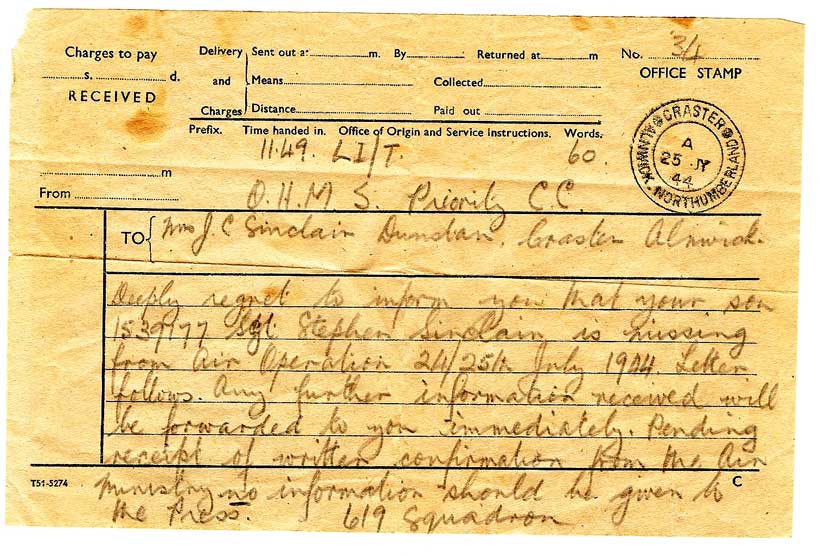 Charges to pay
s. d.
RECEIVED
Delivery and Charges
Sent out at m. By Returned at m
Means Collected
Distance Paid out
No. 3/4
OFFICE STAMP
CRASTER
ALNWICK. NORTHUMBERLAND
A
25 JY
44
Prefix. Time handed in. Office of Origin and Service Instructions. Words.
11.49. LI/T. 60.
m
From
O.H.M S. Priority C.C.
TO Mrs J.C Sinclair Dunstan. Craster Alnwick.
Deeply regret to inform you that your son
1539177 Sgt Stephen Sinclair is missing
from Air Operation 24/25th July 1944. Letter
follows. Any further information received will
be forwarded to you immediately. Pending
receipt of written confirmation from the Air
T51-5274 C
Ministry no information should be given to
the Press. 619 Squadron